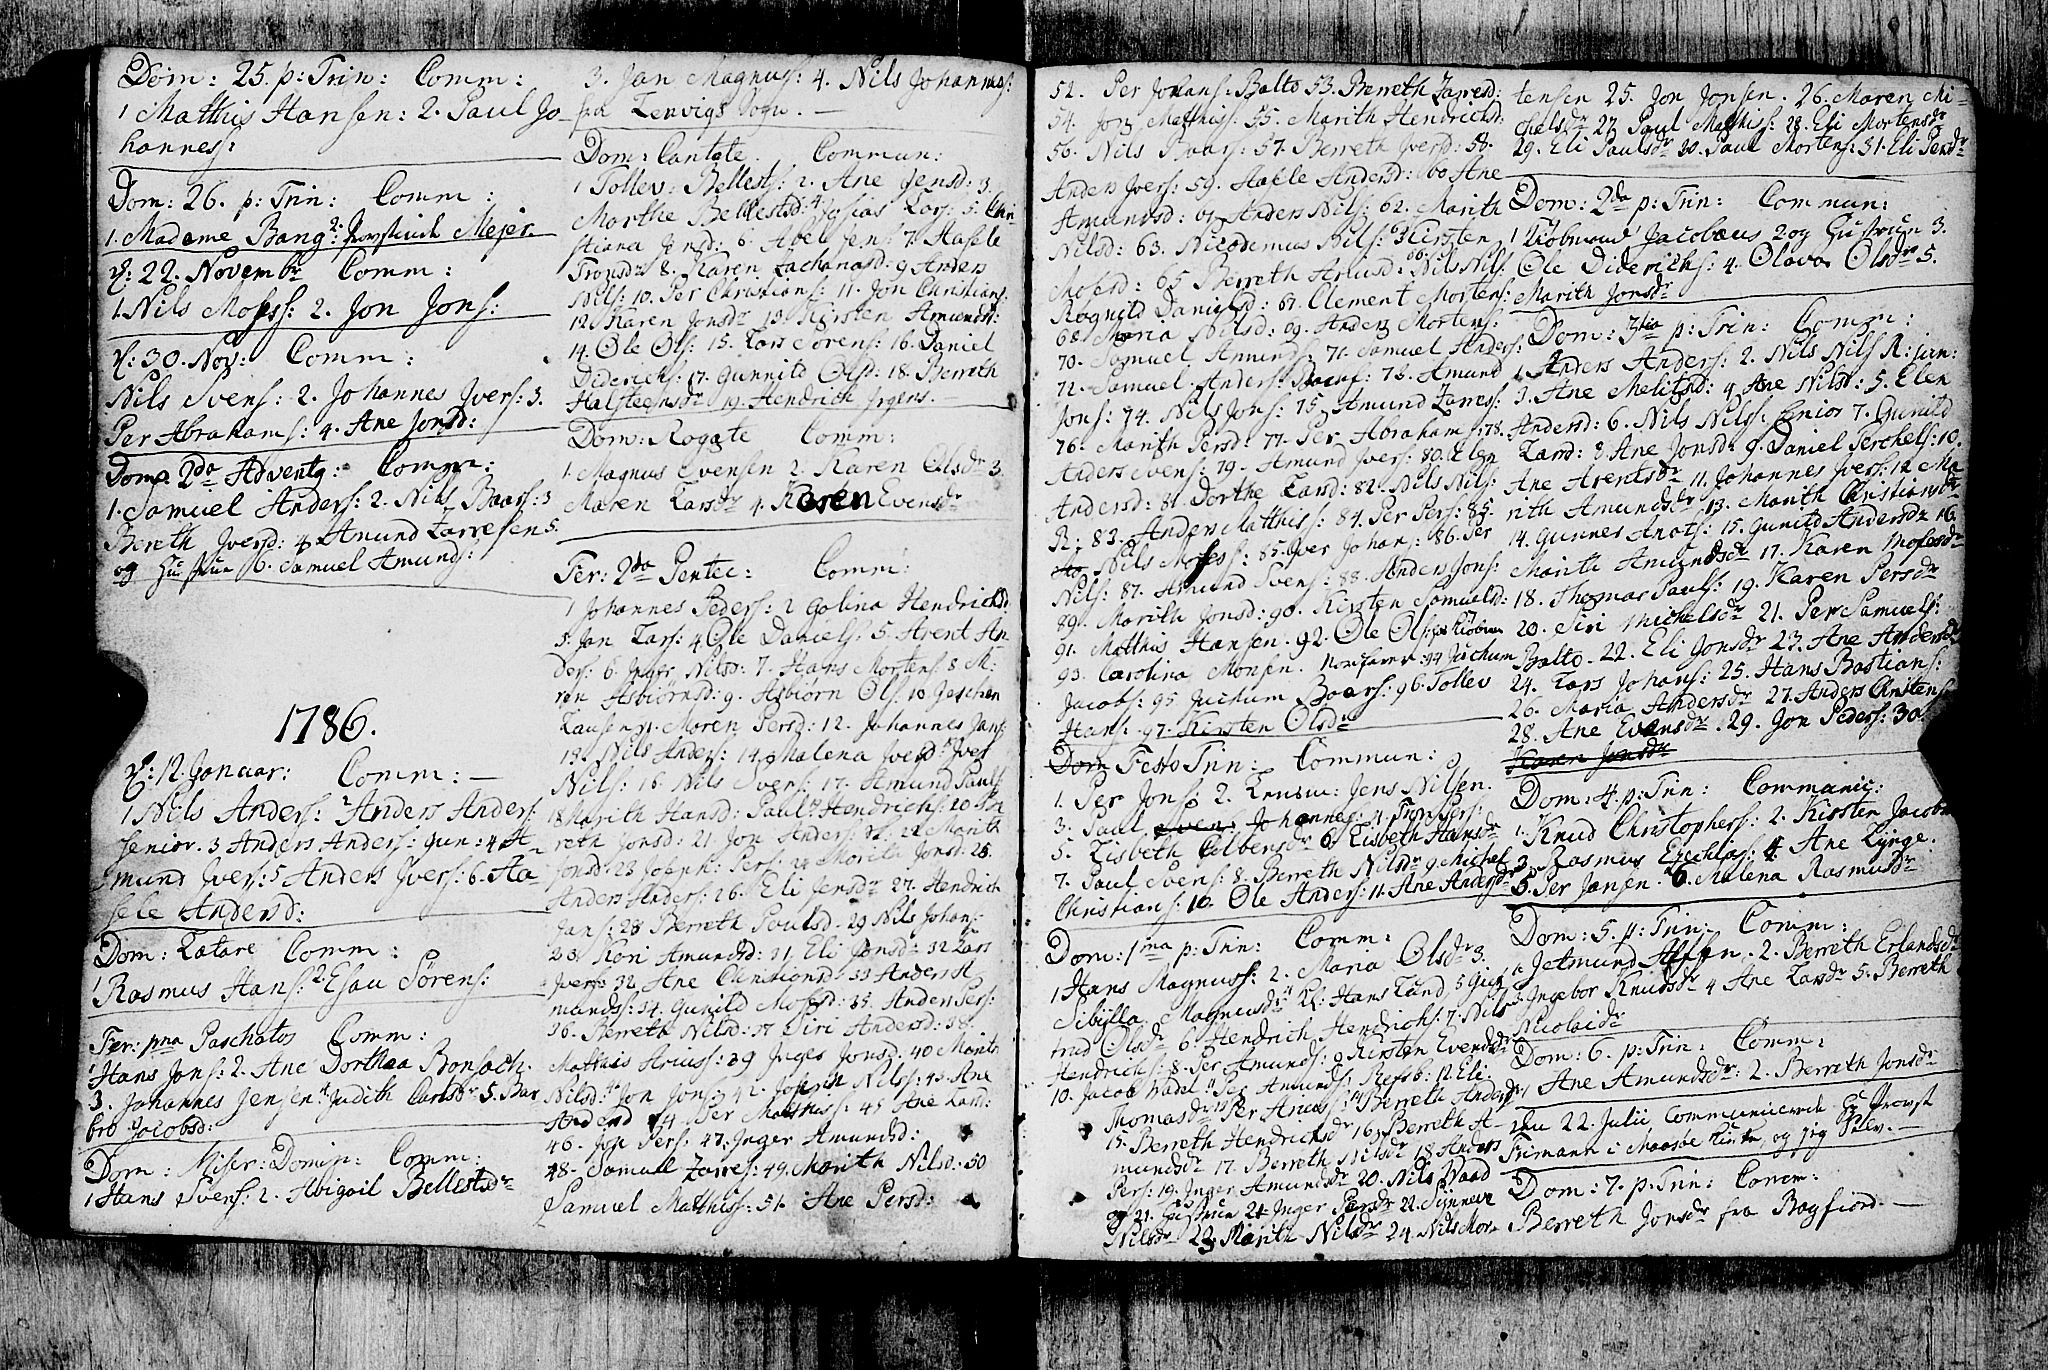 Dom: 25. p: Trin: Comm:
1 Matthis Hansen: 2. Paul Jo-
hannes:
Dom: 26. p: Trin: Comm:
1. Madame Bang: 2. Mejer
d: 22. Novembr Comm:
1. Nils Moses: 2. Jon Jons:
d: 30. Nov: Comm:
Nils Svens: 2. Johannes Ivers: 3.
Per Abrahams: 4. Ane Jonsd:
Dom. 2da Advent: Comm:
1. Samuel Anders: 2. Nils Baars: 3
Bereth Iversd: 4 Amund Larresen 5.
og Hustrue 6. Samuel Amund:
1786.
d: 12 Januar: Comm: —
1 Nils Anders: 2 Anders Anders:
senior. 3 Anders Anders: jun: 4 A-
mund Ivers: 5 Anders Ivers: 6. Aa-
sele Andersd:
Dom: Lætare Comm:
1 Rasmus Hans: 2 Esau Sörens:
Fer: pma Paschatos Comm:
1 Hans Jons: 2. Ane Dorthea Bonsach.
3. Johannes Jensen 4 Judith Carlsdr 5. Bar
bro Jacobsd:
Dom: Miser: Domin: Comm:
1 Hans Svens: 2. Abigail Bellestsdr
3. Jan Magnus: 4. Nils Johannes:
fra Lervigs Sogn. —
Dom: Cantate. Commun:
1 Tollev: Bellests: 2. Ane Jensd: 3.
Marthe Bellestsd: 4 Josias Lars: 5. Chri
stiana Jensd: 6. Abele Jen: 7. Hasele
Tronsdr 8. Karen Zachariasd: 9 Anders
Nils: 10. Per Christians: 11. Jon Christians:
12. Karen Jonsdr 13. Kirsten Amundsd:
14. Ole Ols: 15. Lars Sörens: 16. Daniel
Diderichs: 17. Gunnild Olsd: 18. Berreth
Halsteensdr 19. Hendrich Jrgens. —
Dom: Rogate Comm:
1. Magnus Evensen 2. Karen Olsdr 3.
Maren Larsdr 4. Karen Evensdr
Fer: 2da Pentec: Comm:
1 Johannes Peders: 2 Golina Hendrichsd:
3. Jan Lars: 4 Ole Daniels: 5. Arent An
ders: 6. Inger Nilsd: 7. Hans Mortens: 8 M:
ren Asbiörnsd: 9. Asbiörn Ols: 10 Jochen
Lausen 11. Maren Persd: 12. Johannes Jans:
13. Nils Anders: 14. Malena Iversd 15 Iver
Nils: 16. Nils Svers: 17. Amund Pauls
18 Marith Hansd: Paul 19 Hendrichs: 20 Ber
reth Jonsd: 21. Jon Anders: 22 Marith
Jonsd: 23 Joseph: Pers: 24 Marith Jonsd. 25.
Anders Anders: 26. Eli Jensdr 27. Hendrich
Jans: 28 Berreth Poulsd. 29 Nils Johans:
23. Kari Amundsd: 31 Eli Jonsd: 32 Lars
Ivers: 32. Ane Christiansd: 33 Anders A
mundss: 34. Gunild Mosesd: 35. Anders Pers:
36. Berreth Nilsd: 37 Siri Andersd: 38.
Matthis Arius: 39 Inger Jonsd. 40 Marit
Nilsd: 41 Jon Jons: 42. Joseph Nilss: 43. Ane
Andersd 44 Per Matthis: 45 Ane Larsd:
46. Jon Pers: 47. Inger Amundsd:
48. Samuel Larres: 49. Marith Nilsd: 50
Samuel Matthiss: 51. Ane Persd:
52. Per Johans: Balto 53. Berreth Larresd:
54. Jon Matthis: 55. Marith Hendrichsd:
56. Nils Baars: 57. Berreth Iversd: 58.
Anders Ivers: 59. Asele Andersd: 60 Ane
Amundsd: 61. Anders Nils: 62. Marith
Nilsd: 63. Nicodemus Nils: 64 Kirsten
Mosesd: 65 Berreth Amusd: 66 Nils Nils:
Rognild Danielsd: 67. Clement Mortens:
68. Maria Nilsd: 69. Anders Mortens:
70. Samuel Amunds: 71. Samuel Anders:
72. Samuel Anders: Baars: 73. Amund
Jons: 74. Nils Jons: 75. Amund Larres:
76. Marith Persd: 77. Per Abrahams: 78.
Anders Svens: 79. Amund Ivers: 80. Elen
Andersd: 81. Dorthe Larsd: 82. Nils Nils:
R: 83. Anders Matthiss: 84. Per Pers: 85.
Nils Moses: 85. Iver Johans: 86. Per
Nils: 87. Amund Svens: 88. Anders Jons:
89. Marith Jonsd: 90. Kirsten Samuelsd:
91. Matthis Hansen. 92. Ole Ols:
93. Carolina Monsen. 94 Juchum
Jacobs: 95 Juchum Baars: 96. Tollev
Hans: 97. Kirsten Olsdr
Dom Festo Trin: Commun:
1. Per Jons: 2. Jens Nilsen.
3. Paul Sven: Johannes: 4. Pers:
5. Lisbeth Colbensdr 6 Lisbeth Hansdr
7. Paul Svens: 8. Berreth Nilsdr 9 Michel
Christians: 10. Ole Anders: 11. Ane Andersdr
Dom: 1ma p: Trin: Comm:
1 Hans Magnuss: 2. Maria Olsdr 3.
Sibylla Magnusdr 4 Kl: Hans Lund 5 Giær
trud Olsdr 6 Hendrich Hendrichs: 7. Nils
Hendrichs: 8. Per Amunds: 9 Kirsten Evensdr
10. Jacob Wadel 11 Per Amunds Refsb: 12 Eli
Thomasdr 13 Per Arius: 14 Berreth Andersdr
15. Berreth Hendrichsdr 16. Berreth A-
mundsdr 17. Berreth Nilsdr 18 Anders
Pers: 19. Inger Amundsdr 20. Nils Waad
og 21. Hustrue 21 Inger Persdr 22. Synneve
Nilsdr 23 Marith Nilsdr 24. Nils Mor-
tensen 25. Jon Jonsen. 26. Maren Mi-
chelsdr 27. Paul Matthis: 28. Eli Mortensdr
29. Eli Paulsdr 30. Paul Mortens: 31. Eli Persdr
Dom: 2da p: Trin: Commun:
1 Kiöbmand Jacobæus 2 og Hustrue 3.
Ole Diderichs: 4. Olava Olsdr 5.
Marith Jonsdr
Dom: 3tia p: Trin: Comm:
1. Anders Anders: 2. Nils Nils R: jun:
3. Ane Melitsd: 4 Ane Nilsd: 5. Elen
Andersd: 6. Nils Nils: Senior 7. Gunild
Larsd: 8 Ane Jonsd: 9. Daniel Perchels: 10.
Ane Arentsdr 11. Johannes Ivers: 12 Ma
rith Amundsdr 13. Marith Christiansdr
14. Gunner Anots: 15. Gunild Andersdr 16.
Marith Amundsdr 17. Karen Mosesdr
18. Thomas Pauls: 19. Karen Persdr
20. Siri Michelsdr 21. Per Samuels:
Balto. 22. Eli Jonsdr 23. Ane Andersdr
24. Lars Johans: 25. Hans Bastians:
26. Maria Andersdr 27. Anders Christens:
28. Ane Evensdr. 29. Jon Peders: 30.
Karen Jonsdr
Dom: 4. p: Trin: Communic:
1. Knud Christophers: 2. Kirsten Jacobs
3. Rasmus Ezechias: 4 Ane Lynge.
5. Per Jansen. 6. Malena Rasmusdr
Dom: 5. p: Trin: Comm:
1. Jetmund Affsn. 2. Berreth Erlandsdr
3. Ingebor Knudsdr 4 Ane Larsdr 5. Berreth
Nicolaidr
Dom: 6. p: Trin: Comm:
1 Ane Amundsdr: 2. Berreth Jonsdr
den 22. Julii Communicerede Hr Provst
Frimann i Maasöe Kirke, og jeg Selv. —
Dom: 7. p: Trin: Comm:
Berreth Jonsdr fra Bogfiord. —